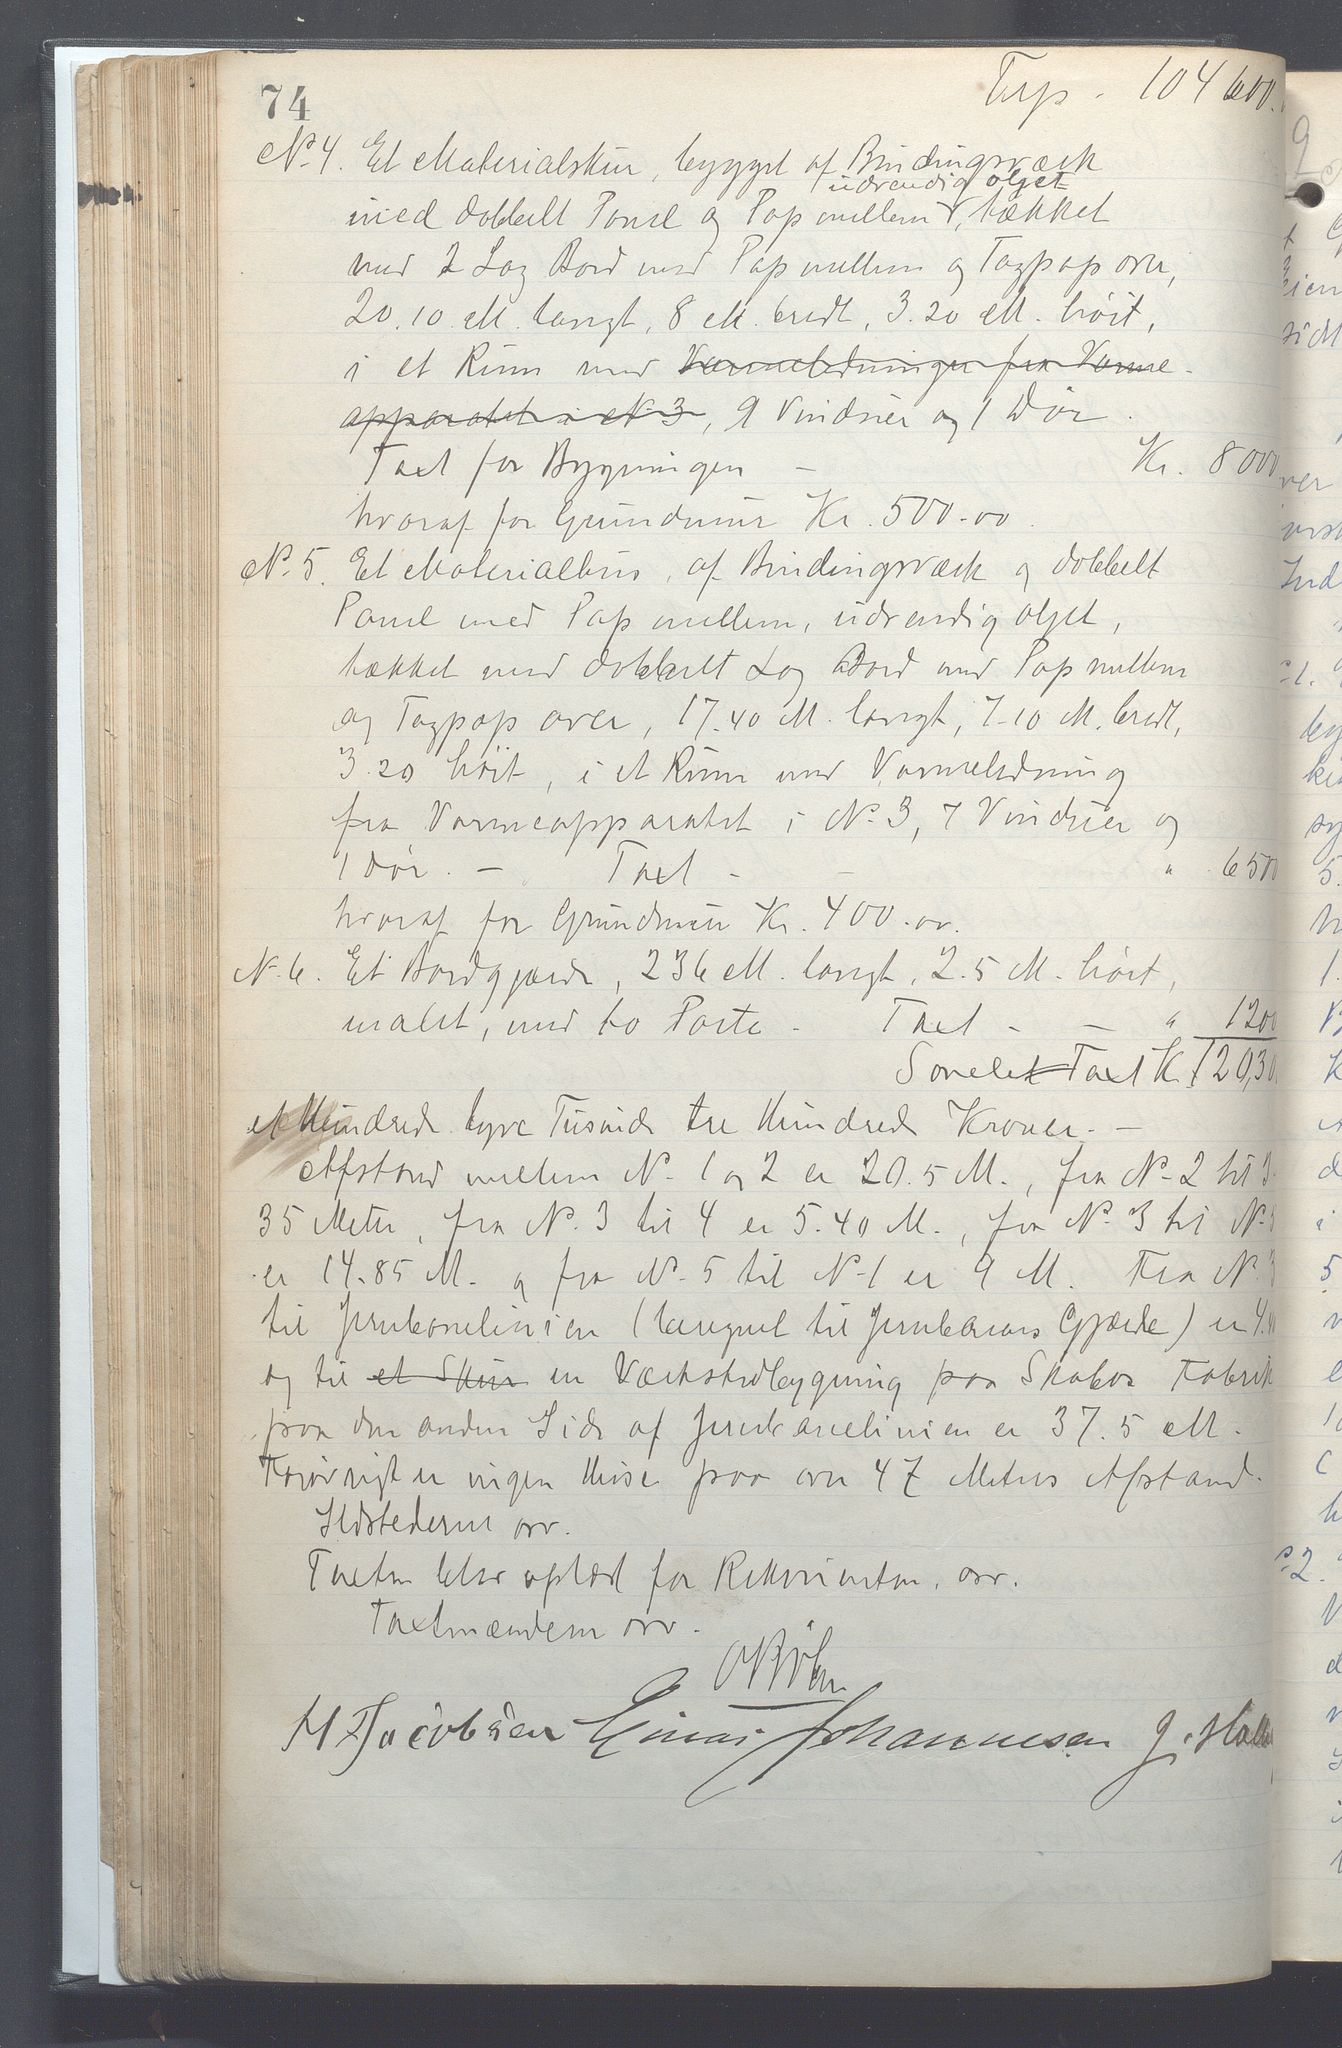 74
Trsp. 104 600.
No. 4. Et Materialskur, bygget af Bindingsværk
udvendig oljet
med dobbelt Panel og Pap mellem, tækket
med 2 Lag Bord med Pap mellem og Tagpap over,
20.10 M. langt, 8 M. bredt, 3.20 M. höit,
i et Rum med Varmeledninger fra Varme-
apparatet i No. 3, 9 Vinduer og 1 Dör.
Taxt for Bygningen - Kr. 8000
hvoraf for Grundmur Kr. 500.00.
No. 5. Et Materialhus, af Bindingsværk og dobbelt
Panel med Pap mellem, udvendig oljet,
tækket med dobbelt Lag Bord med Pap mellem
og Tagpap over, 17.40 M. langt, 7.10 M. bredt,
3.20 höit, i et Rum med Varmeledning
fra Varmeapparatet i No. 3, 7 Vinduer og
1 dör. - Taxt - - " 6500
hvoraf for Grundmur Kr. 400.00.
No. 6. Et Bordgjærde, 236 M. langt, 2.5 M. höit,
malet, med to Porte - Taxt - - " 1200
Samlet Taxt Kr. 120,30
et Hundrede tyve Tusinde tre Hundrede Kroner. -
Afstand mellem No. 1 og 2 er 20.5 M., fra No. 2 til 3
35 Meter, fra No. 3 til 4 er 5.40 M., fra No. 3 til No. 5
er 14.85 M. og fra No. 5 til No. 1 er 9 M. Fra No. 3
til Jernbanelinien (beregnet til Jernbanens Gjærde) er 4.
og til et Skur en Værkstedbygning paa Skabos Fabrik
paa den anden Side af Jernbanelinien er 37.5 M.
Forövrigt er ingen Huse paa over 47 Meters Afstand.
Ildstederne osv.
Taxten blev oplæst for Rekvirenten, osv.
Taxtmændene osv.
O Böhn
H Jacobsen Einar Johannesen J.